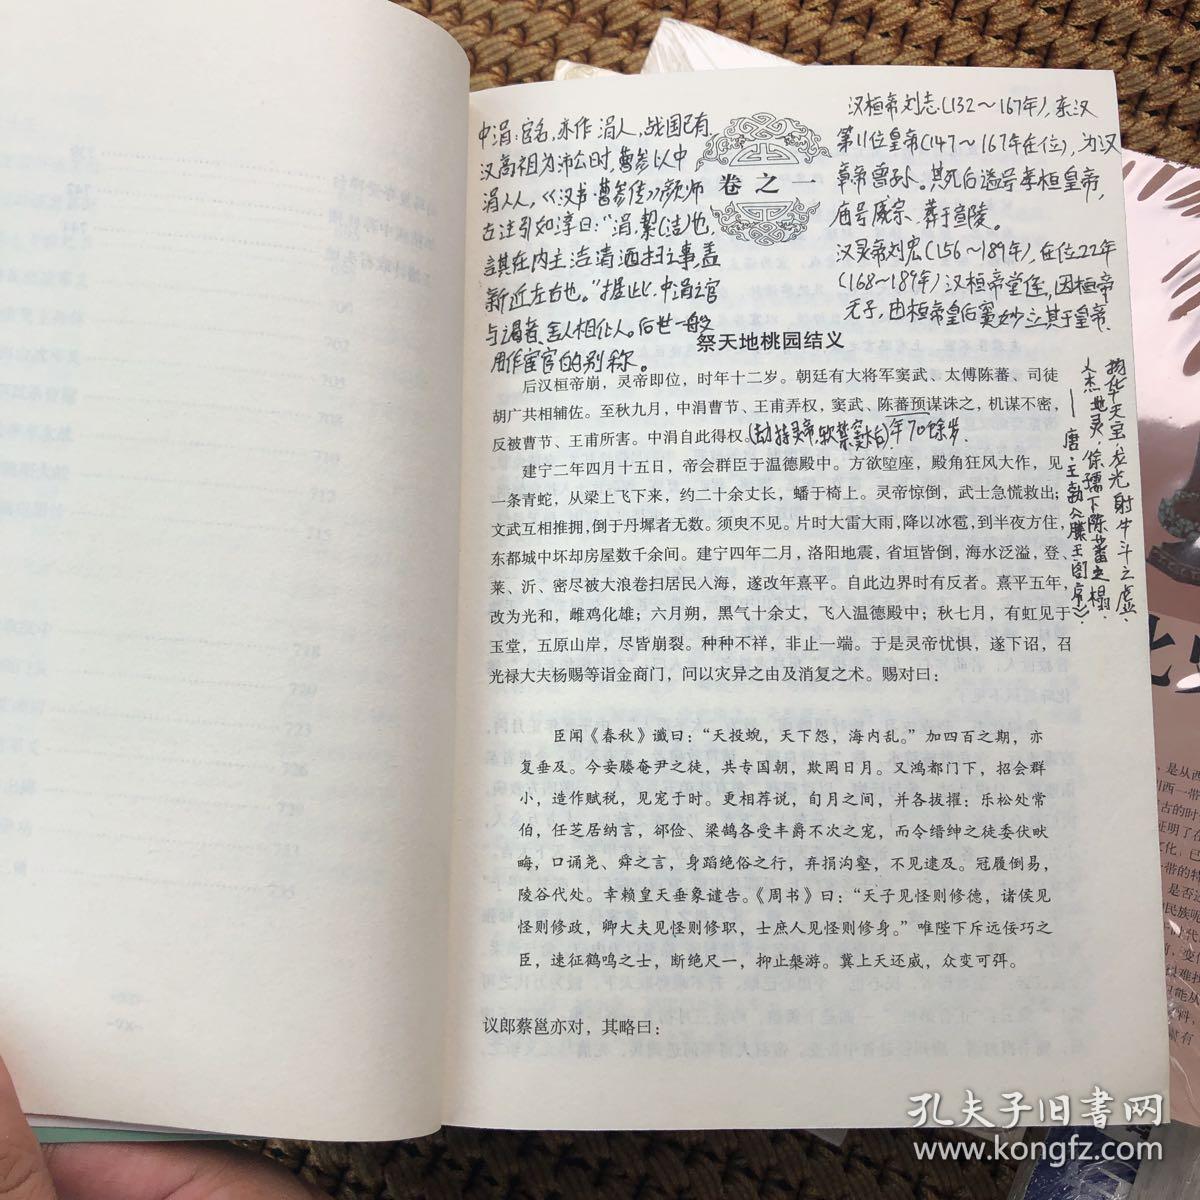 中涓:官名,亦作涓人,战国已有,
汉高祖为沛公时,曹参以中
涓从,《汉书·曹参传》颜师
古注引如淳曰:“涓,絜(洁)也,
言其在内主洁清洒扫之事,盖
亲近左右也。”据此,中涓之官
与谒者、舍人相似。后世一般
用作宦官的别称。
卷之一
汉桓帝刘志(132~167年),东汉
第11位皇帝(147~167年在位),为汉
章帝曾孙。其死后谥号孝桓皇帝,
庙号威宗、葬于宣陵。
汉灵帝刘宏(156~189年),在位22年
(168~189年)汉桓帝堂侄,因桓帝
无子,由桓帝皇后窦妙立其于皇帝、
祭天地桃园结义
后汉桓帝崩,灵帝即位,时年十二岁。朝廷有大将军窦武、太傅陈蕃、司徒
胡广共相辅佐。至秋九月,中涓曹节、王甫弄权,窦武、陈蕃预谋诛之,机谋不密,
反被曹节、王甫所害。中涓自此得权。(劫持灵帝,软禁窦太后)年70余岁.
建宁二年四月十五日,帝会群臣于温德殿中。方欲陞座,殿角狂风大作,见
一条青蛇,从梁上飞下来,约二十余丈长,蟠于椅上。灵帝惊倒,武士急慌救出;
文武互相推拥,倒于丹墀者无数。须臾不见。片时大雷大雨,降以冰雹,到半夜方住,
东都城中坏却房屋数千余间。建宁四年二月,洛阳地震,省垣皆倒,海水泛溢,登、
莱、沂、密尽被大浪卷扫居民入海,遂改年熹平。自此边界时有反者。熹平五年,
改为光和,雌鸡化雄;六月朔,黑气十余丈,飞入温德殿中;秋七月,有虹见于
玉堂,五原山岸,尽皆崩裂。种种不祥,非止一端。于是灵帝忧惧,遂下诏,召
光禄大夫杨赐等诣金商门,问以灾异之由及消复之术。赐对曰:
物华天宝,龙光射牛斗之虚,
人杰地灵,徐孺下陈蕃之榻.
——唐·王勃《滕王阁序》
臣闻《春秋》谶曰:“天投蜺,天下怨,海内乱。”加四百之期,亦
复垂及。今妾媵奄尹之徒,共专国朝,欺罔日月。又鸿都门下,招会群
小,造作赋税,见宠于时。更相荐说,旬月之间,并各拔擢:乐松处常
伯,任芝居纳言,郤俭、梁鹄各受丰爵不次之宠,而令缙绅之徒委伏畎
晦,口诵尧、舜之言,身蹈绝俗之行,弃捐沟壑,不见逮及。冠履倒易,
陵谷代处。幸赖皇天垂象谴告。《周书》曰:“天子见怪则修德,诸侯见
怪则修政,卿大夫见怪则修职,士庶人见怪则修身。”唯陛下斥远佞巧之
臣,速征鹤鸣之士,断绝尺一,抑止槃游。冀上天还威,众变可弭。
议郎蔡邕亦对,其略曰:
孔夫子旧书网
www.kongfz.com